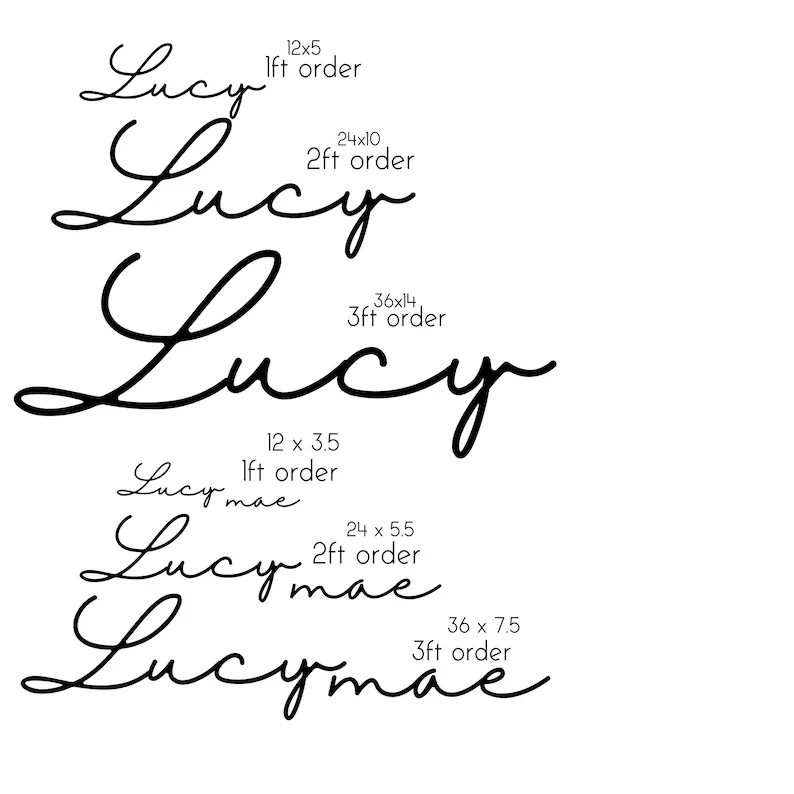 12x5
1ft order
Lucy
24x10
2ft order
Lucy
36x14
3ft order
Lucy
12 x 3.5
1ft order
Lucy mae
24 x 5.5
2ft order
Lucy mae
36 x 7.5
3ft order
Lucy mae